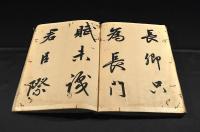 長卿只
為長門
賦未識
君臣際